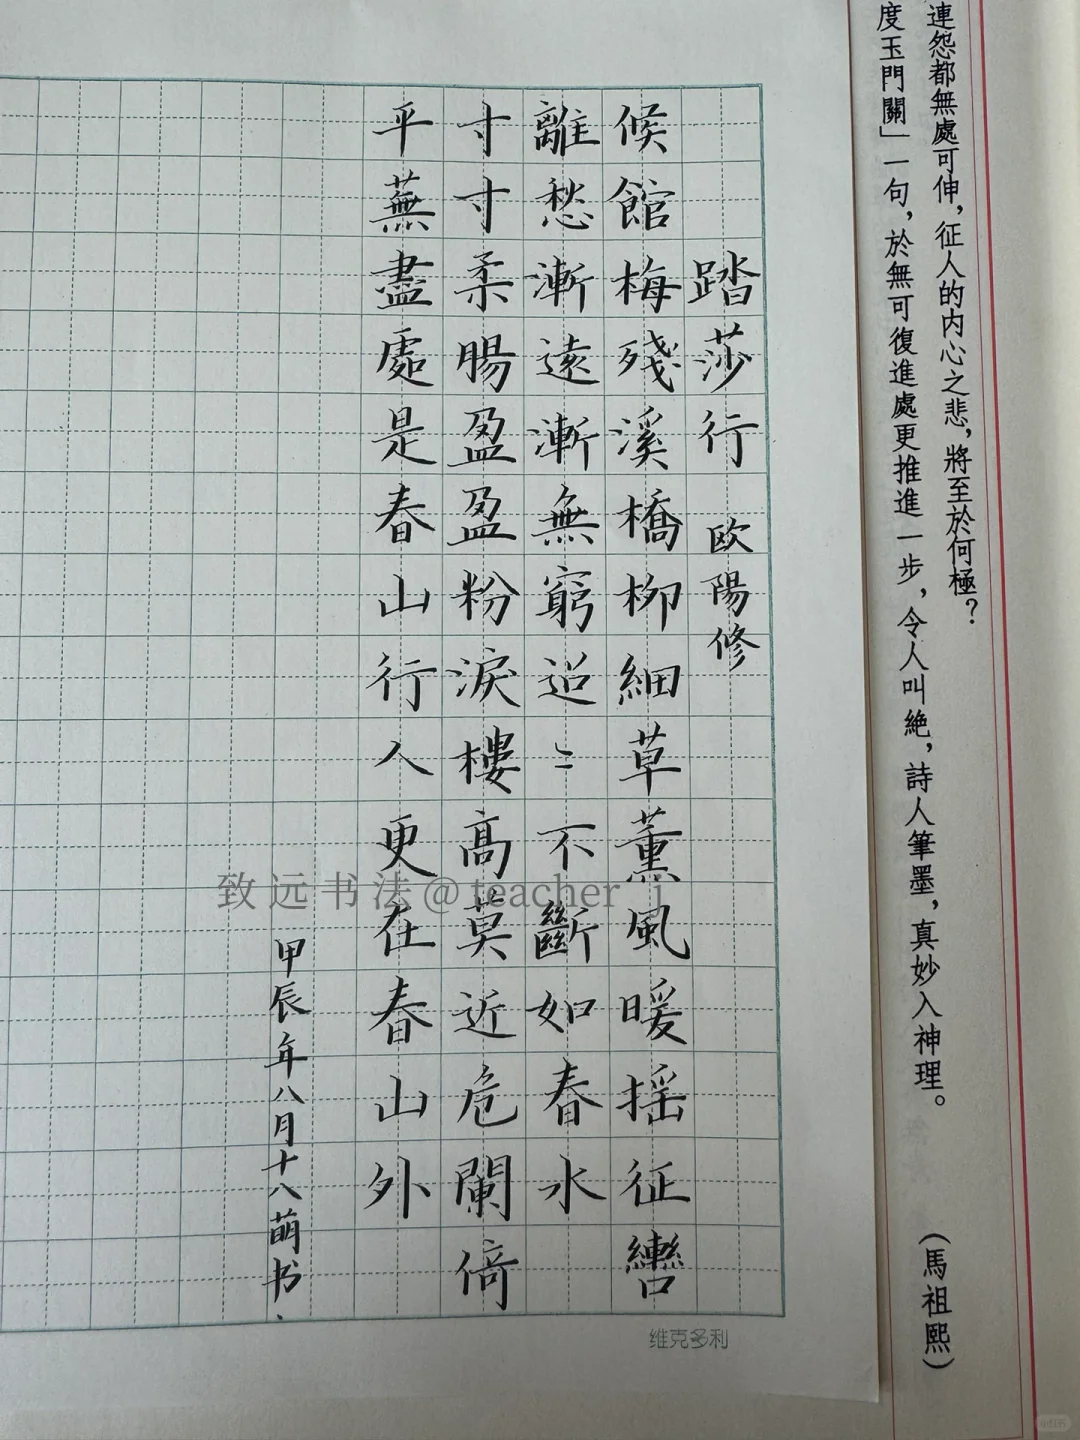 連怨都無處可伸，征人的内心之悲，將至於何極？
度玉門關」一句，於無可復進處更推進一步，令人叫絶，詩人筆墨，真妙入神理。
（馬祖熙）
踏莎行 歐陽修
候館梅殘溪橋柳細草薰風暖摇征轡
離愁漸遠漸無窮迢〻不斷如春水
寸寸柔腸盈盈粉淚樓高莫近危闌倚
平蕪盡處是春山行人更在春山外
甲辰年八月十八萌书
维克多利
致远书法@teacher j
小红书